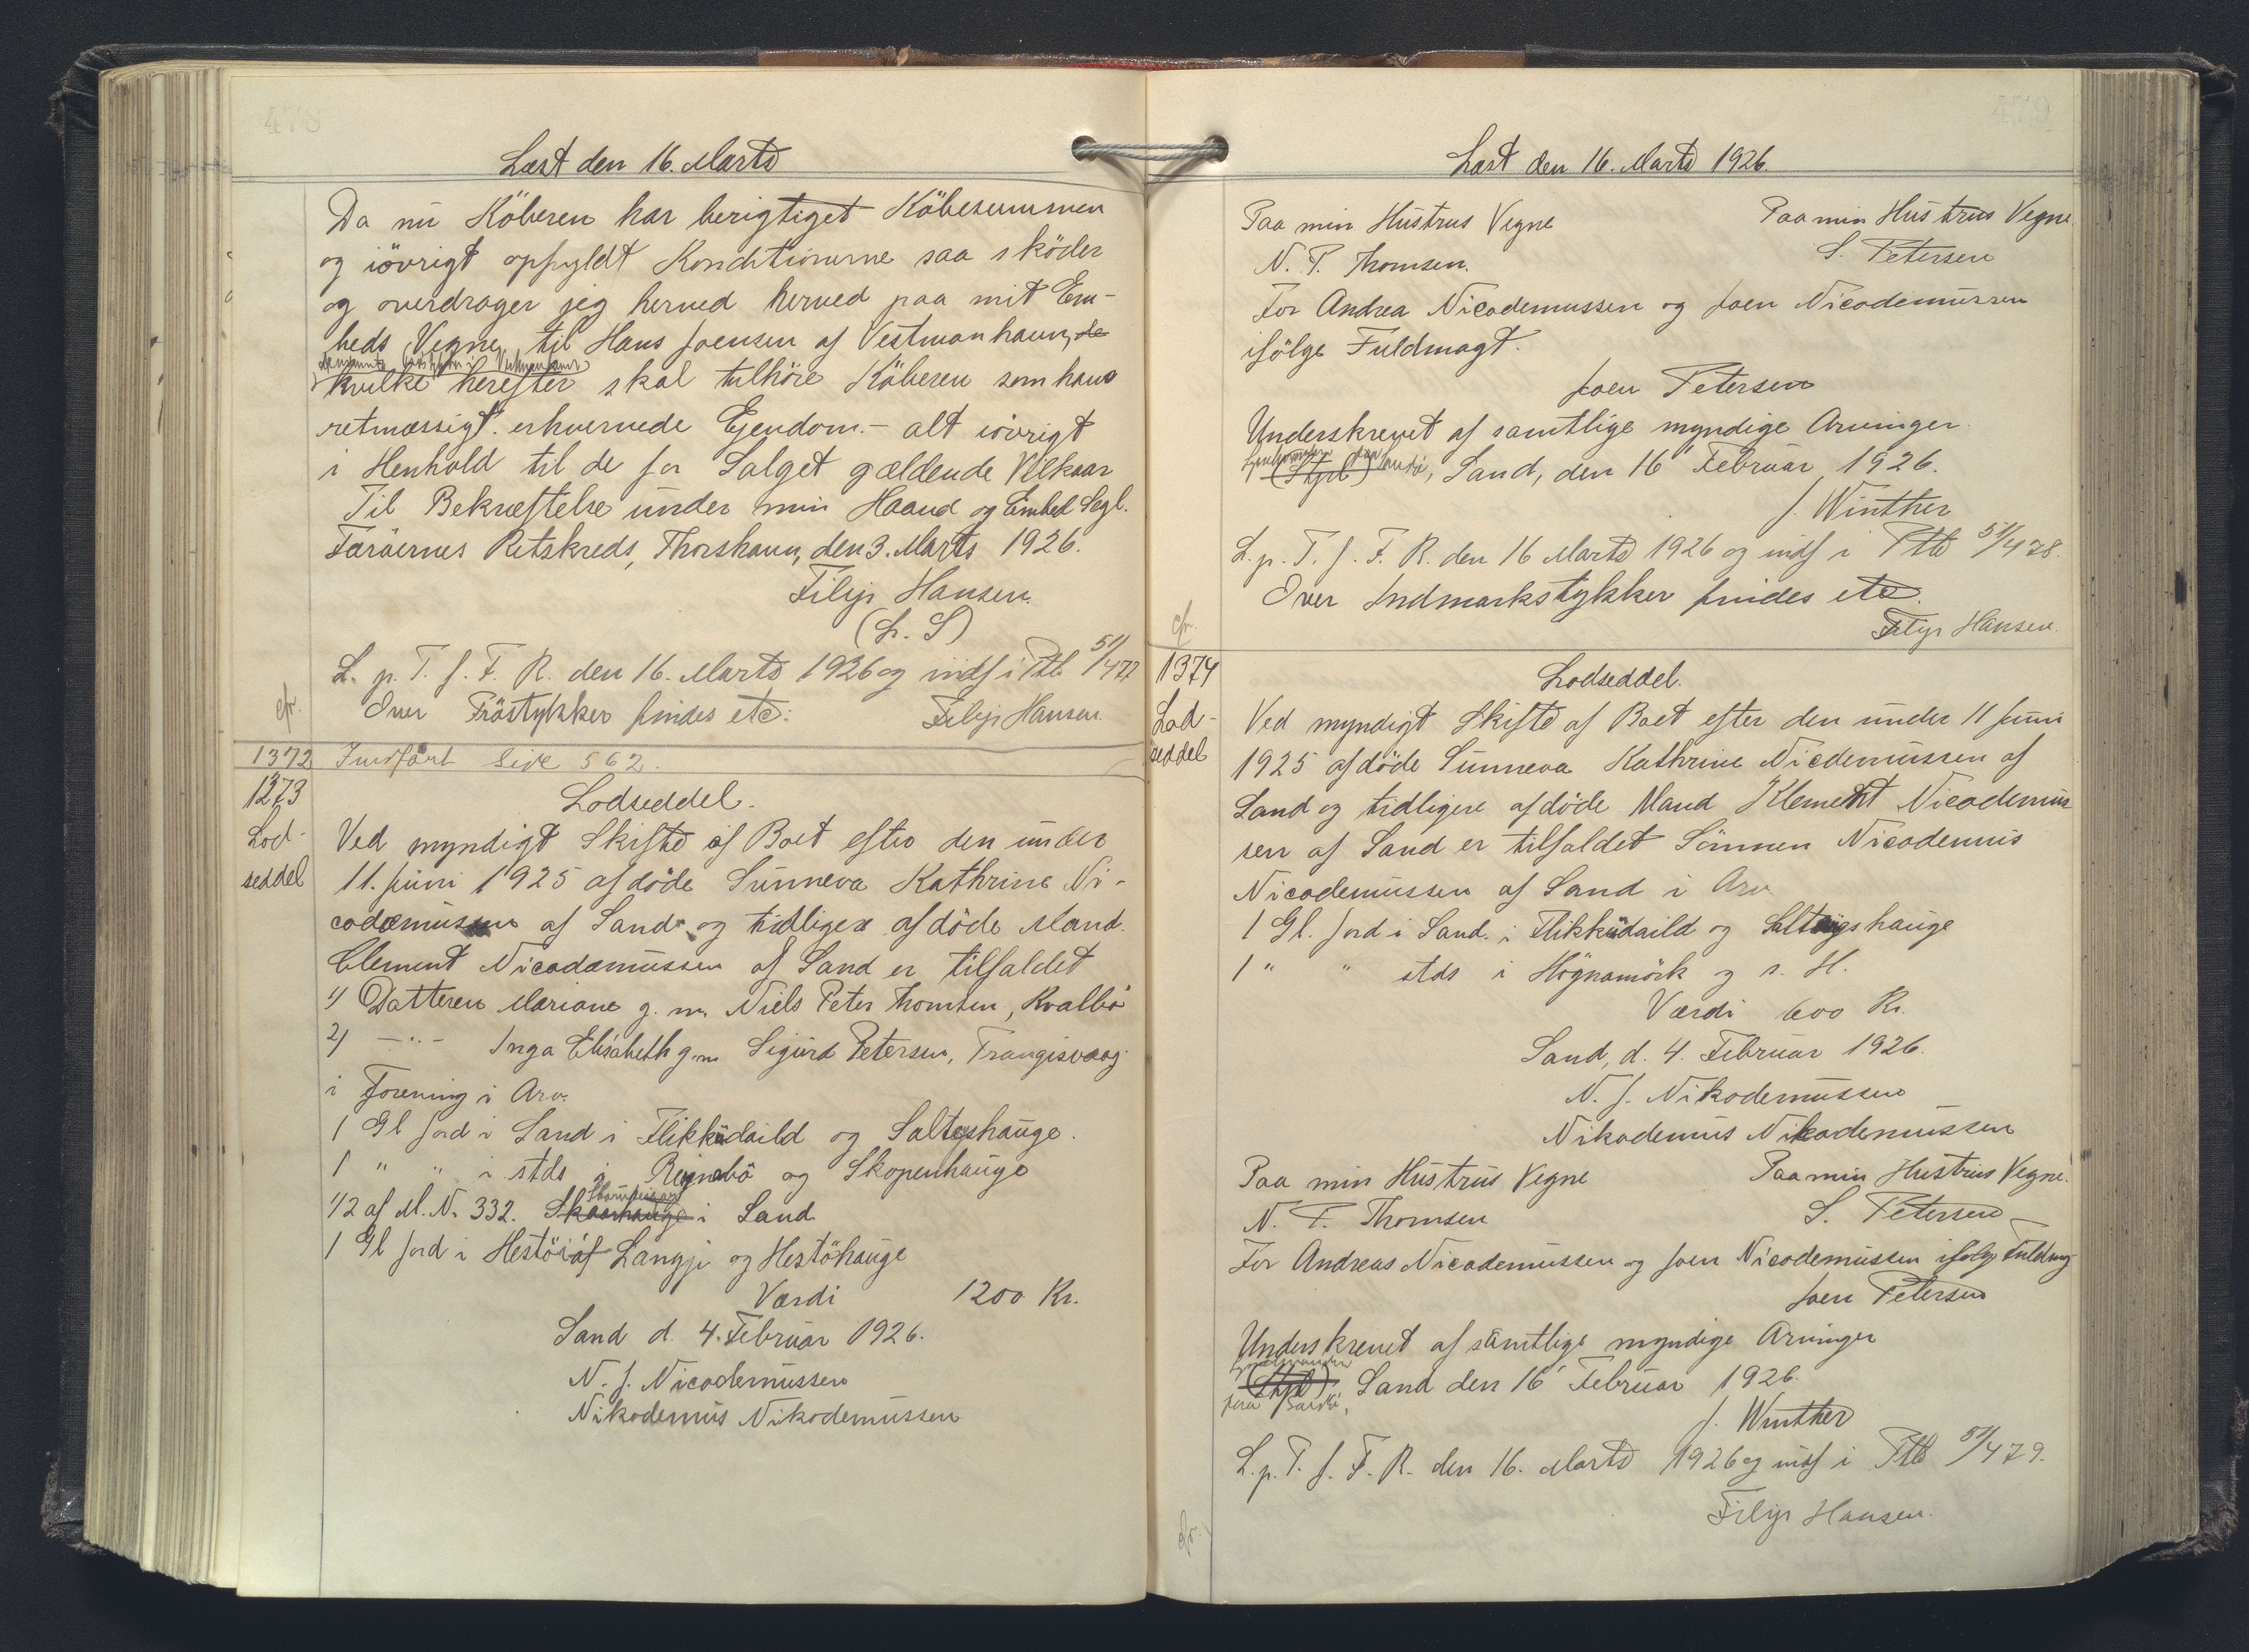 478
Læst den 16. Marts
Da nu Köberen har berigtiget Köbesummen
og iövrigt opfyldt Konditionerne saa sköder
og overdrager jeg herved herved paa mit Em-
beds Vegne til Hans Joensen af Vestmanhavn, de
hvilke herefter skal tilhöre Köberen som hans
retmæssigt erhvervede Ejendom. - alt iövrigt
i Henhold til de for Salget gældende Vilkaar
Til Bekræftelse under min Haand og Embed Segl.
Færöernes Retskreds, Thorshavn, den 3. Marts 1926.
Filip Hansen.
(L. S)
L. p. T. f. F. R. den 16. Marts 1926 og indf i Ptb 51/477
cfr. Over Fröstykker findes etc: Filip Hansen
1372 Indfört Side 562.
1373 Lodseddel.
Lod-
seddel
Ved myndigt Skifte af Boet efter den under
11. Juni 1925 afdöde Sunneva Kathrine Ni-
codemussen af Sand og tidligere afdöde Mand
Clement Nicodæmussen af Sand er tilfaldet
1) Datteren Mariane g. m. Niels Peter Thomsen, Kvalbö
2) -"- Inga Elisabeth g. m Sigurd Petersen, Trangisvaag
i Forening i Arv.
1 Gl Jord i Sand i Flikkudaild og Salteyshauge.
1 " " i stds i Reynabö og Skopenhauge
1/2 af M. N. 332. Skaarhauge i Sand
1 Gl Jord i Hestö i af Langji og Hestöhauge
Værdi 1200 Kr.
Sand d. 4. Februar 1926.
N. J. Nicodemussen
Nikodemus Nikodemussen
479
Læst den 16. Marts 1926.
Paa min Hustrus Vegne Paa min Hustrus Vegne.
N. P. Thomsen. S. Petersen
For Andrea Nicodemussen og Joen Nicodemussen
ifölge Fuldmagt.
Joen Petersen
Underskrevet af samtlige myndige Arvinger.
Sysselmanden paa Sandö
(Stpl), Sand, den 16' Februar 1926.
J. Winther
L. p. T. f. F. R. den 16 Marts 1926 og indf i Ptb 51/478.
Over Indmarkstykker findes etc.
cfr. Filip Hansen.
1374 Lodseddel.
Lod-
seddel
Ved myndigt Skifte af Boet efter den under 11 Juni
1925 afdöde Sunneva Kathrine Nicdemussen af
Sand og tidligere afdöde Mand Klement Nicodemus
sen af Sand er tilfaldet Sönnen Nicodemus
Nicodemussen af Sand i Arv
1 Gl. Jord i Sand i Flikkudaild og Salteygshauge
1 " " stds i Högnamörk og s. H.
Værdi 600 Kr.
Sand, d. 4. Februar 1926.
N. J. Nikodemussen
Nikodemus Nikodemussen
Paa min Hustrus Vegne Paa min Hustrus Vegne.
N. P. Thomsen S. Petersen
For Andreas Nicodemussen og Joen Nicodemussen ifölge Fuldmg
Joen Petersen
Underskrevet af samtlige myndige Arvinger
Sysselmanden
(Stpl), Sand den 16' Februar 1926.
paa Sandö,
J. Winther
L. p. T. f. F. R. den 16. Marts 1926 og indf i Ptb 51/479.
Filip Hansen.
cfr.